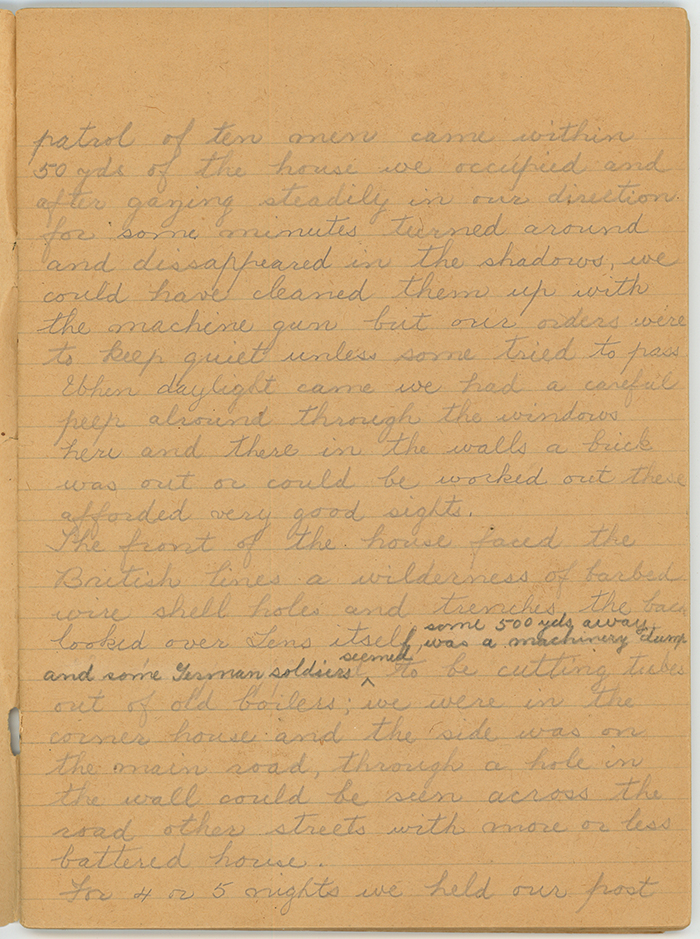 patrol of ten men came within
50 yds of the house we occupied and
after gazing steadily in our direction
for some minutes turned around
and dissappeared in the shadows, we
could have cleaned them up with
the machine gun but our orders were
to keep quiet unless some tried to pass
When daylight came we had a careful
peep alround through the windows
here and there in the walls a brick
was out or could be worked out these
afforded very good sights.
The front of the house faced the
British lines a wilderness of barbed
wire shell holes and trenches the back
some 500 yds away
looked over Lens itself, was a machinery dump
seemed
and some German soldiers ^ to be cutting tubes
out of old boilers; we were in the
corner house and the side was on
the main road, through a hole in
the wall could be seen across the
road other streets with more or less
battered house.
For 4 or 5 nights we held our post